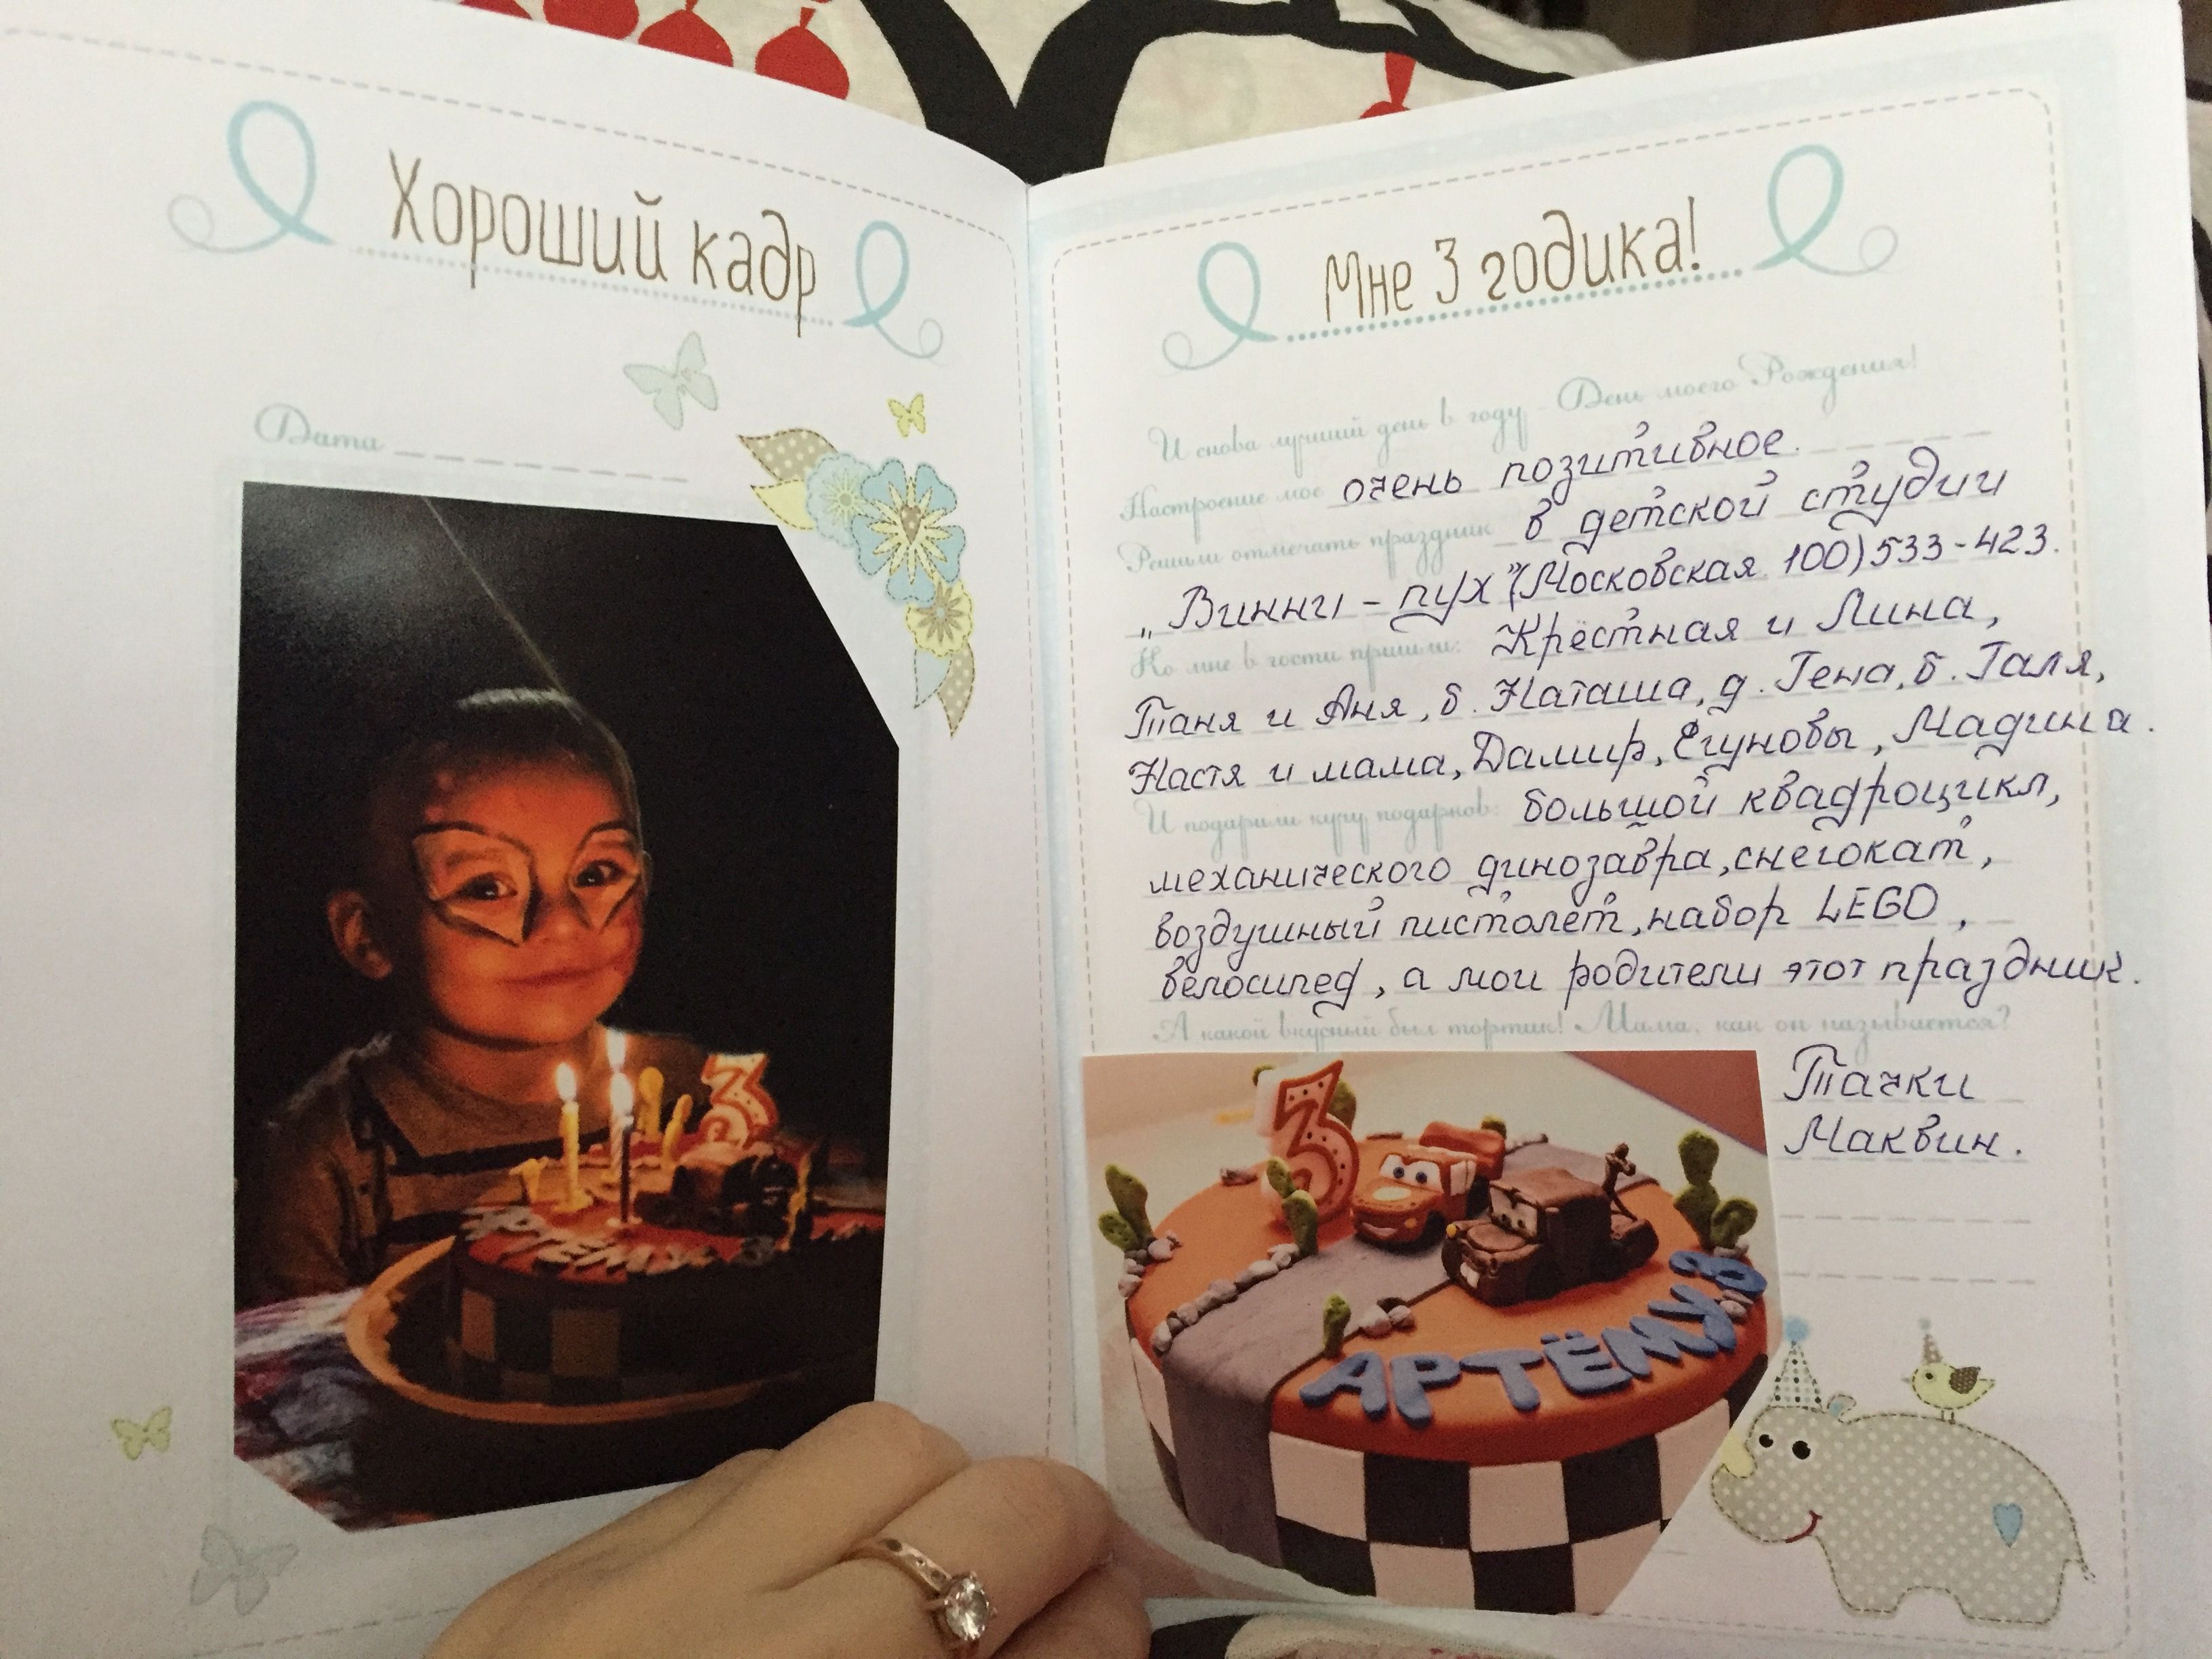 Хороший кадр
Дата
АРТЁМУ 3
Мне 3 годика!
И снова лучший день в году - День моего Рождения!
Настроение мое очень позитивное.
Решили отмечать праздник в детской студии
„Винни-пух"(Московская 100)533-423.
Ко мне в гости пришли: Крёстная и Лина,
Таня и Аня, б. Наташа, д. Гена, б. Галя,
Настя и мама, Дамир, Егуновы, Мадина.
И подарили кучу подарков: большой квадроцикл,
механического динозавра, снегокат,
воздушный пистолет, набор LEGO,
велосипед, а мои родители этот праздник.
А какой вкусный был тортик! Мама, как он называется?
Тачки
Маквин.
3
АРТЁМУ 3